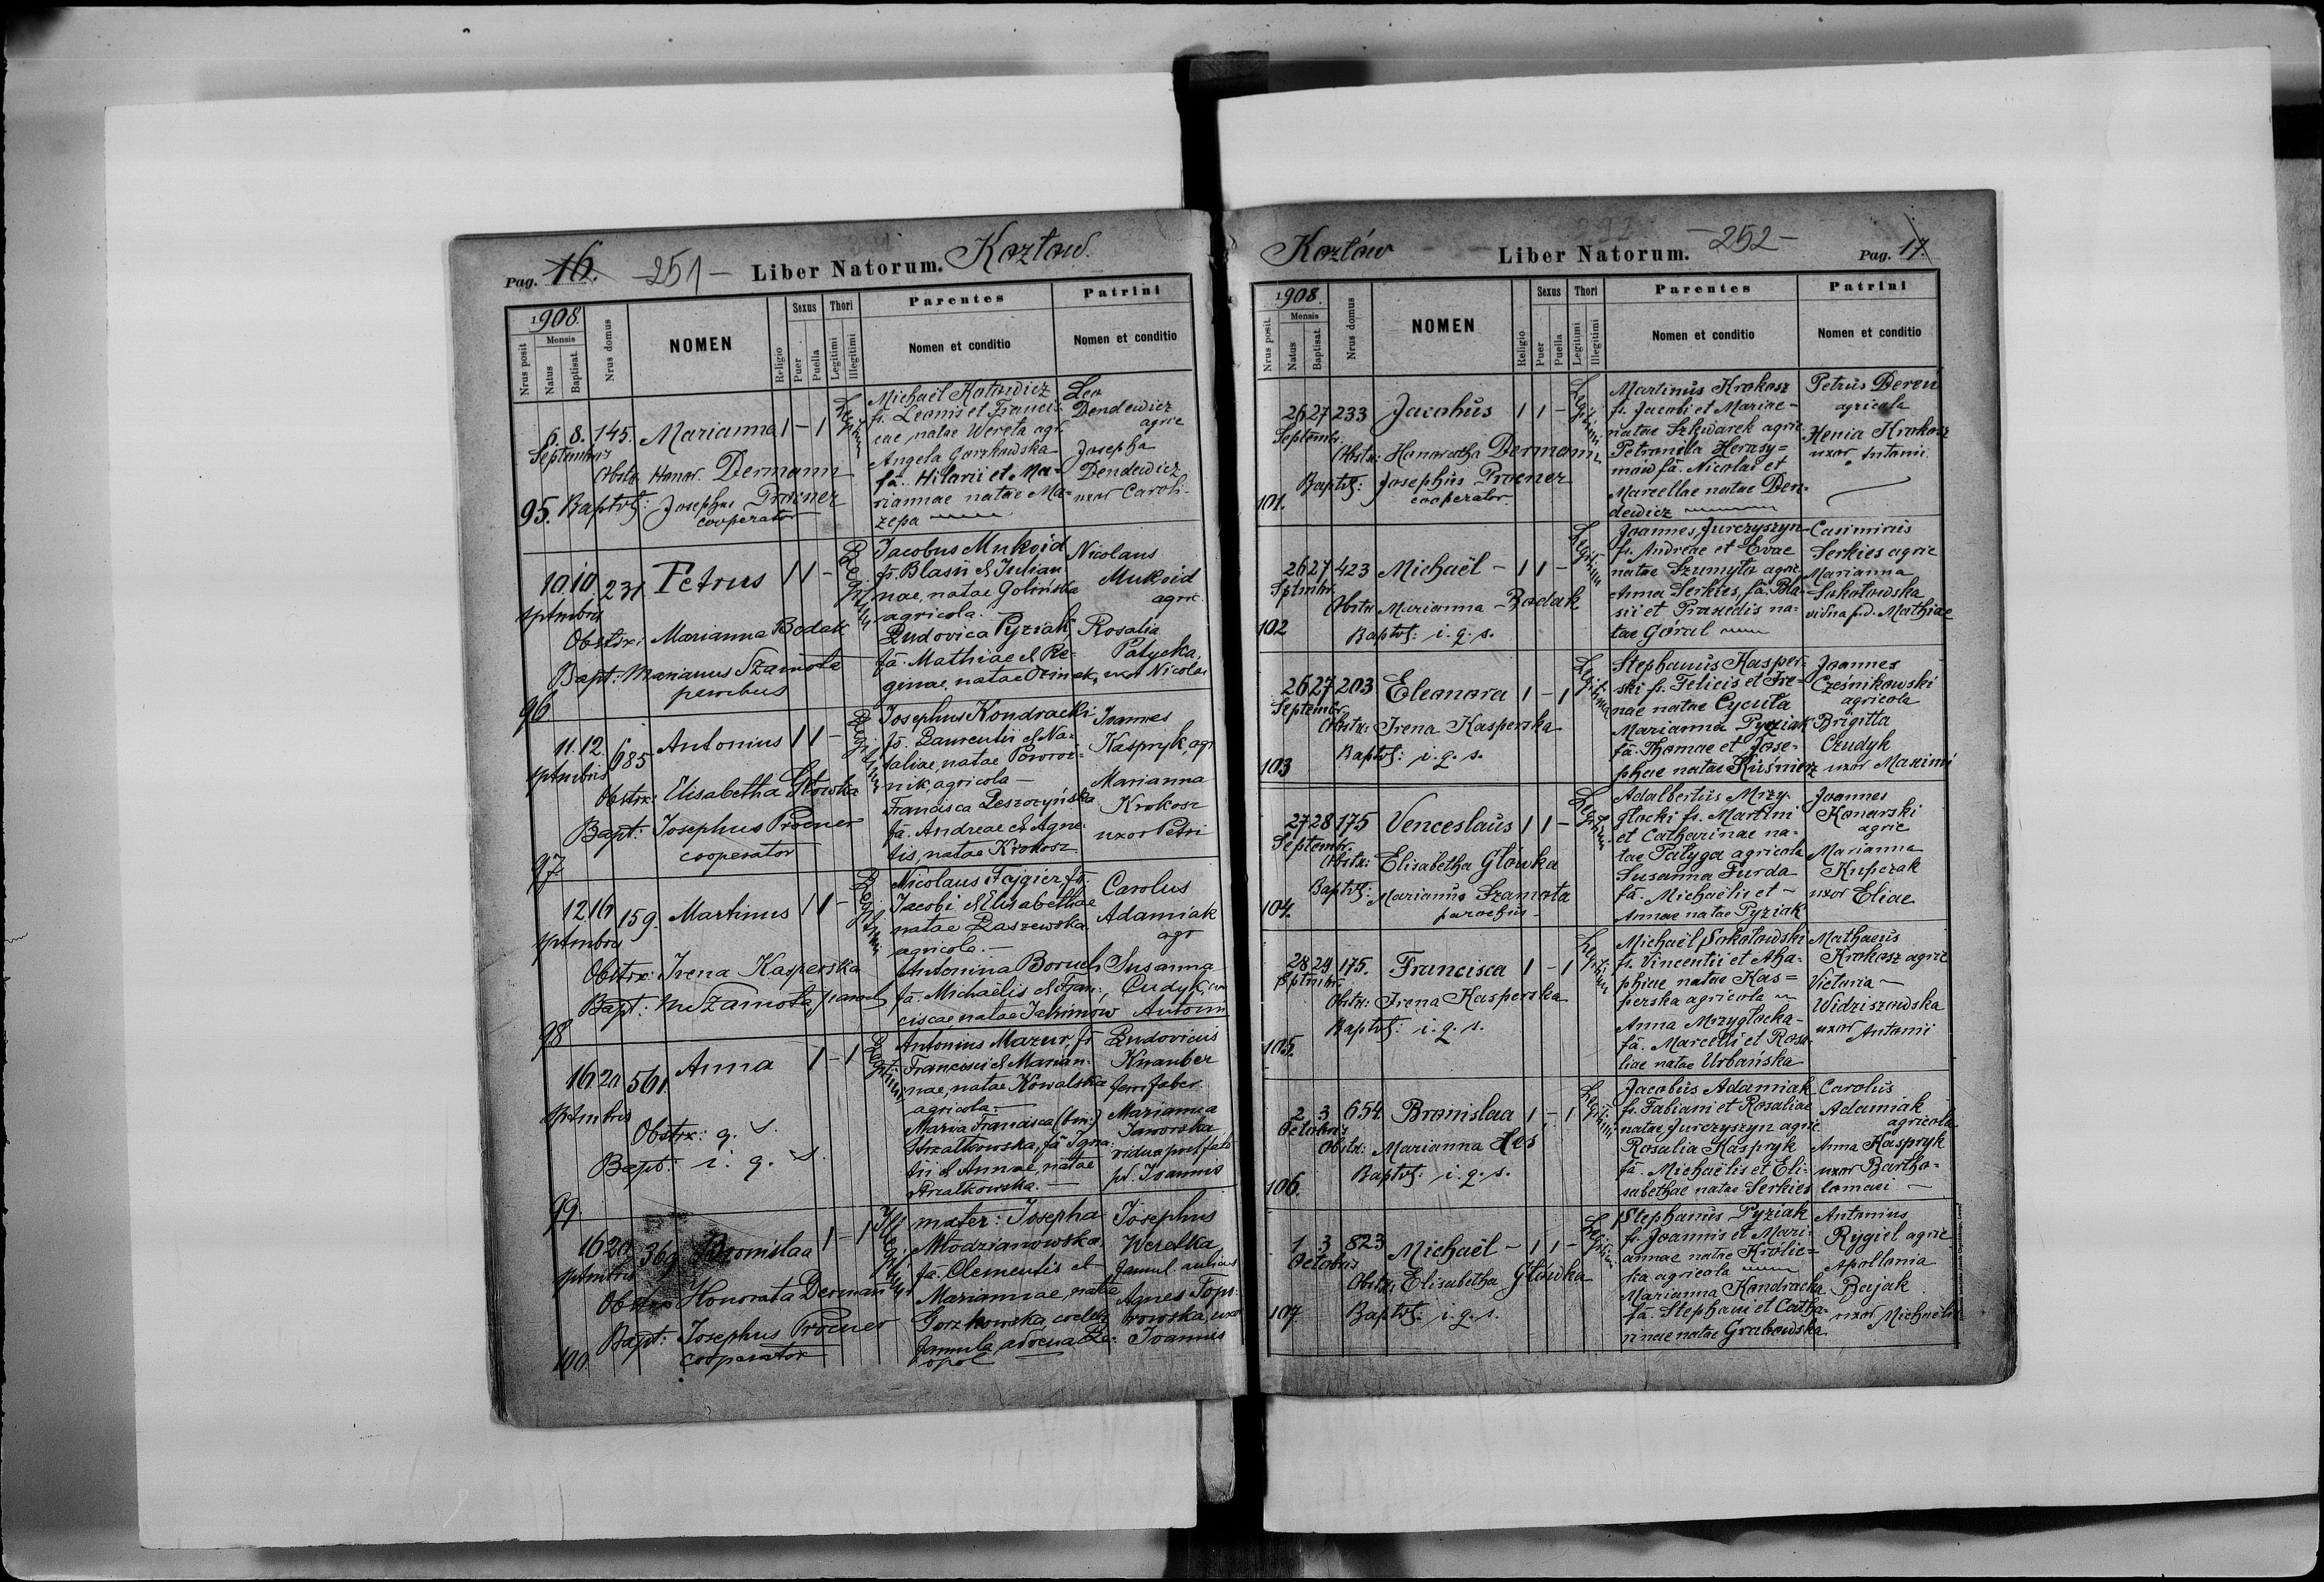 Pag. 16. -251- Liber Natorum. Kozłow.
1908.
Nrus posit
Mensis
Natus
Baptisat.
Nrus domus
NOMEN
Religio
Sexus
Puer
Puella
Thori
Legitimi
Illegitimi
Parentes
Nomen et conditio
Patrini
Nomen et conditio
6. 8. 145. Marianna 1 - 1
Septembris
Obstr. Honor. Dermann
95. Baptvt: Josephus Procner
cooperator
Legitimi
Michael
fs. Leonis et Francis-
cae natae Wereta agr.
Angela Gorzkowska
fa. Hilarii et Ma-
riannae natae Ma-
zepa
Leo
Dendewicz
agric
Josepha
Dendewicz
uxor Caroli
10 10 231 Petrus 1 1 -
Septembris
Obstrx: Marianna Bodak
Bapt: Marianus Szamota
parochus
96
Legitimi
Jacobus Mukoid
fs. Blasii & Julian-
nae, natae Golińska
agricola.
Ludovica Pyziak
fa. Mathiae & Re-
ginae, natae Ozimek
Nicolaus
Mukoid
agric.
Rosalia
Patycka,
uxor Nicolai
11. 12. 685 Antonius 1 1 -
Septembris
Obstrx: Elisabetha Głowka
Bapt: Josephus Procner
cooperator
97
Legitimi
Josephus Kondracki
fs. Laurentii & Na-
taliae, natae Powroź-
nik, agricola -
Francisca Leszczyńska
fa. Andreae & Agne-
tis, natae Krokosz
Joannes
Kaspryk, agr
Marianna
Krokosz
uxor Petri
12. 16 159. Martinus 1 1 -
Septembris
Obstrx: Irena Kasperska
Bapt: M Szamota, paroch
98
Legitimi
Nicolaus Fajgier, fs.
Jacobi & Elisabethae
natae Laszewska
agricola. -
Antonina Boruch
fa. Michaëlis & Fran-
ciscae natae Jachimow
Carolus
Adamiak
agr
Susanna
Cudyk, uxor
Antonii
16. 20 561. Anna 1 - 1
Septembris
Obstrx: q. s.
Bapt: i. q. s.
99
Legitimi
Antonius Mazur, fs
Francisci & Marian-
nae, natae Kowalska
agricola. -
Maria Francisca (bin.)
Strzałkowska, fa Igna-
tii & Annae, natae
Strzałkowska. -
Ludovicus
Knauber
ferri faber
Marianna
Jaworska
vidua post fata
pd. Joannis
16 20 369 Bronislaa 1 - 1
Septembris
Obstrx Honorata Dermann
Bapt: Josephus Procner
cooperator
100.
Illegitimi
mater: Josepha
Młodzianowska
fa. Clementis et
Mariannae, natae
Gorzkowska, coelebs
famula, advena
Josephus
Werelka
famul. aulicus
Agnes Topo-
rowska, uxor
Joannis
Kozłów Liber Natorum. -252- Pag. 17.
1908.
Nrus posit.
Mensis
Natus
Baptisat.
Nrus domus
NOMEN
Religio
Sexus
Puer
Puella
Thori
Legitimi
Illegitimi
Parentes
Nomen et conditio
Patrini
Nomen et conditio
26 27 233 Jacobus 1 1 -
Septembr.
Obstx: Honoratha Dermann
Baptvt: Josephus Procner
cooperator
101.
Legitimi
Martinus Krokosz
fs. Jacobi et Mariae -
natae Szkwarek agric.
Petronella Herasy=
mow fa. Nicolai et
Marcellae natae Den-
dewicz
Petrus Dereń
agricola
Xenia Krokosz
uxor Antonii.
26 27 423 Michaël - 1 1 -
Sptmbr.
Obstx Marianna - Bodak
102 Baptvt: i. q. s.
Legitimi
Joannes Jurczyszyn
fs. Andreae et Evae
natae Szumyta agric.
Anna Serkies, fa. Bla-
sii et Praxedis na-
tae Góral
Casimirus
Serkies agric
Marianna
Sokołowska
vidua p.d. Mathiae
26 27 203 Eleonora 1 - 1
Septembr.
Obstx: Irena Kasperska
103 Baptvt: i. q. s.
Legitimi
Stephanus Kasper-
ski fs. Felicis et Ire-
nae natae Cycuła
Marianna Pyziak
fa. Thomae et Jose-
phae natae Kuśnierz
Joannes
Cześnikowski
agricola
Brigitta
Czudyk
uxor Maximi
27 28 175 Venceslaus 1 1 -
Septembr.
Obstx: Elisabetha Głowka
Baptvt: Marianus Szamota
104. parochus -
Legitimi
Adalbertus Mrzy-
głocki fs. Martini
et Catharinae na-
tae Pałyga agricola
Susanna Furda
fa. Michaëlis et -
Annae natae Pyziak
Joannes
Konarski
agric
Marianna
Kupczak
uxor Eliae
28 29 175. Francisca 1 - 1
Sptmbr.
Obstx: Irena Kasperska
Baptvt: i. q. s.
105.
Legitimi
Michaël Sokołowski
fs. Vincentii et Aga-
phiae natae Kas=
perska agricola
Anna Mrzygłocka -
fa. Marcelli et Rosa-
liae natae Urbańska
Mathaeus
Krokosz agric
Victoria -
Widziszowska
uxor Antonii
2 3 654. Bronislaa 1 - 1
Octobris
Obstx: Marianna Les
Baptvt: i. q. s.
106.
Legitimi
Jacobus Adamiak
fs. Fabiani et Rosaliae
natae Jurczyszyn agric
Rosalia Kaspryk
fa. Michaëlis et Eli-
sabethae natae Serkies
Carolus
Adamiak
agricola
Anna Kaspryk
uxor Bartho-
lomaei -
1 3 823 Michaël - 1 1 -
Octobris
Obstx: Elisabetha Głowka
107 Baptvt. i. q. s.
Legitimi
Stephanus Pyziak
fs. Joannis et Mari-
annae natae Królic-
ka agricola
Marianna Kondracka
fa. Stephani et Catha-
rinae natae Grabowska
Antonius
Rygiel agric
Apollonia
Bajak
uxor Michaëlis